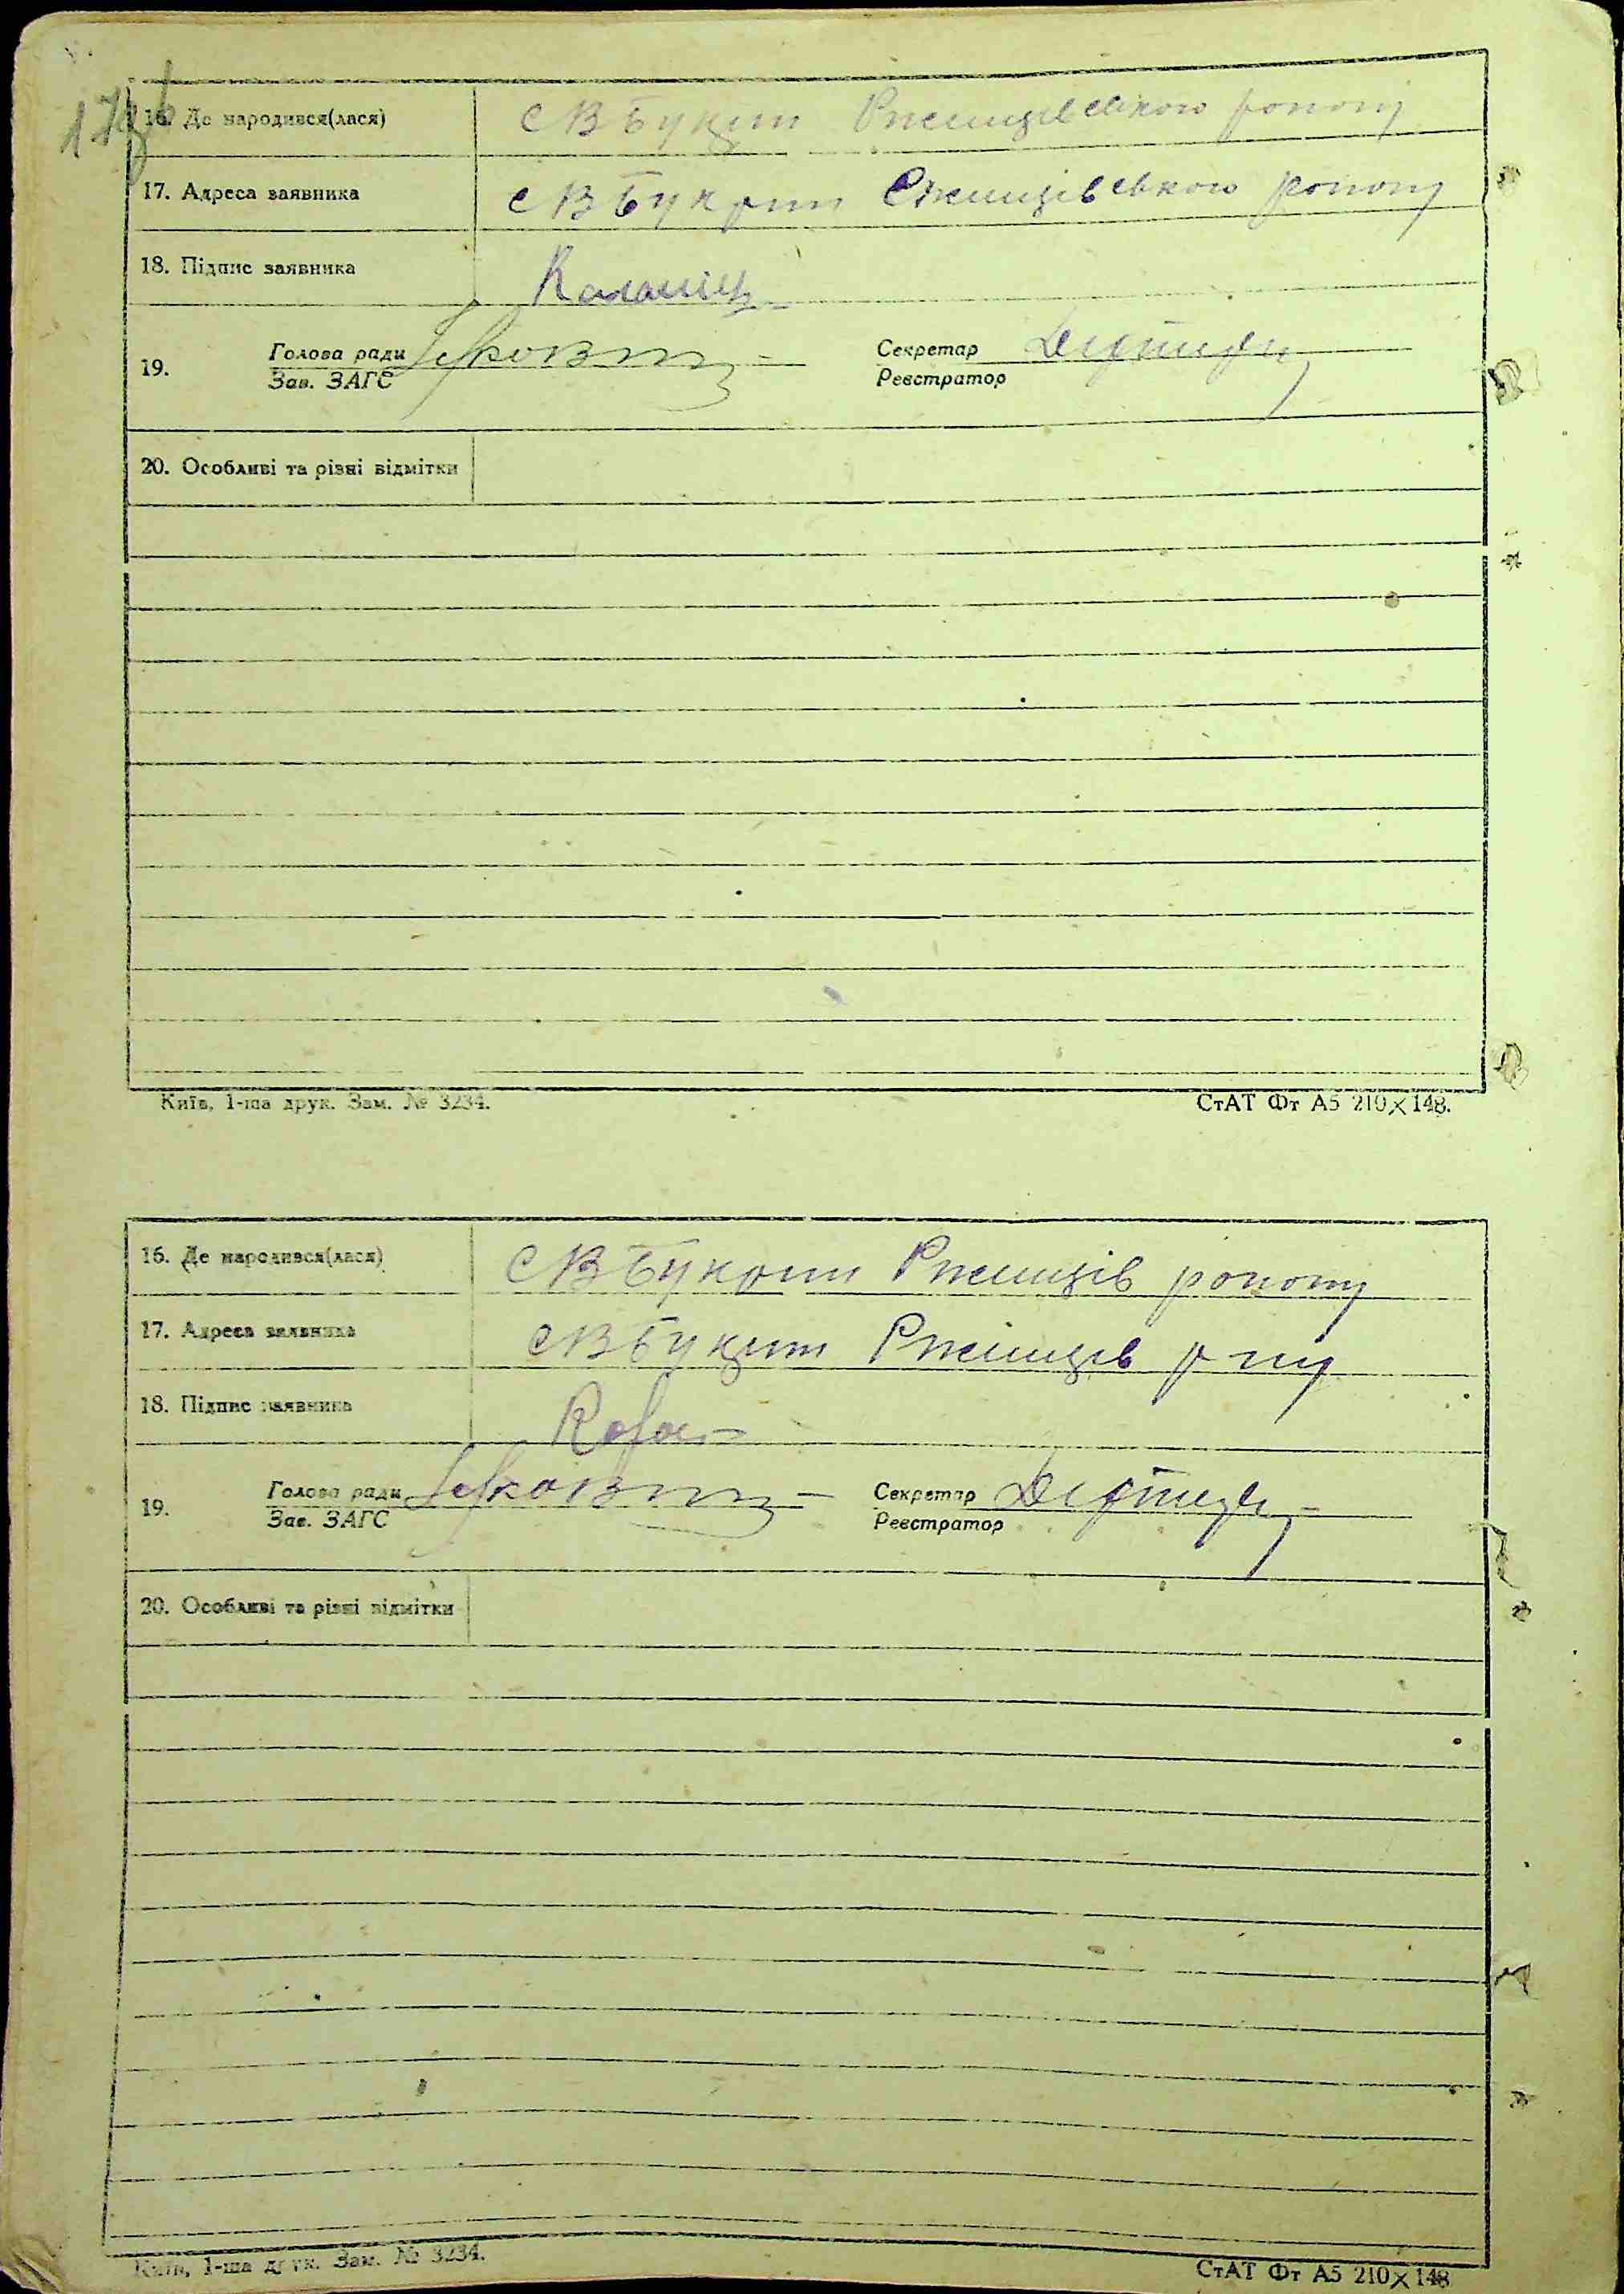 16. Де народився(лася) с В Букрин Ржищівського району
17. Адреса заявника с В Букрин Ржищівського району
18. Підпис заявника
19. Голова ради Секретар
Зав. ЗАГС Реєстратор
20. Особливі та різні відмітки
Київ, 1-ша друк. Зам. № 3234. СтАТ Фт А5 210×148.
16. Де народився(лася) с В Букрин Ржищів району
17. Адреса заявника с В Букрин Ржищів р-ну
18. Підпис заявника
19. Голова ради Секретар
Зав. ЗАГС Реєстратор
20. Особливі та різні відмітки
Київ, 1-ша друк. Зам. № 3234. СтАТ Фт А5 210×148